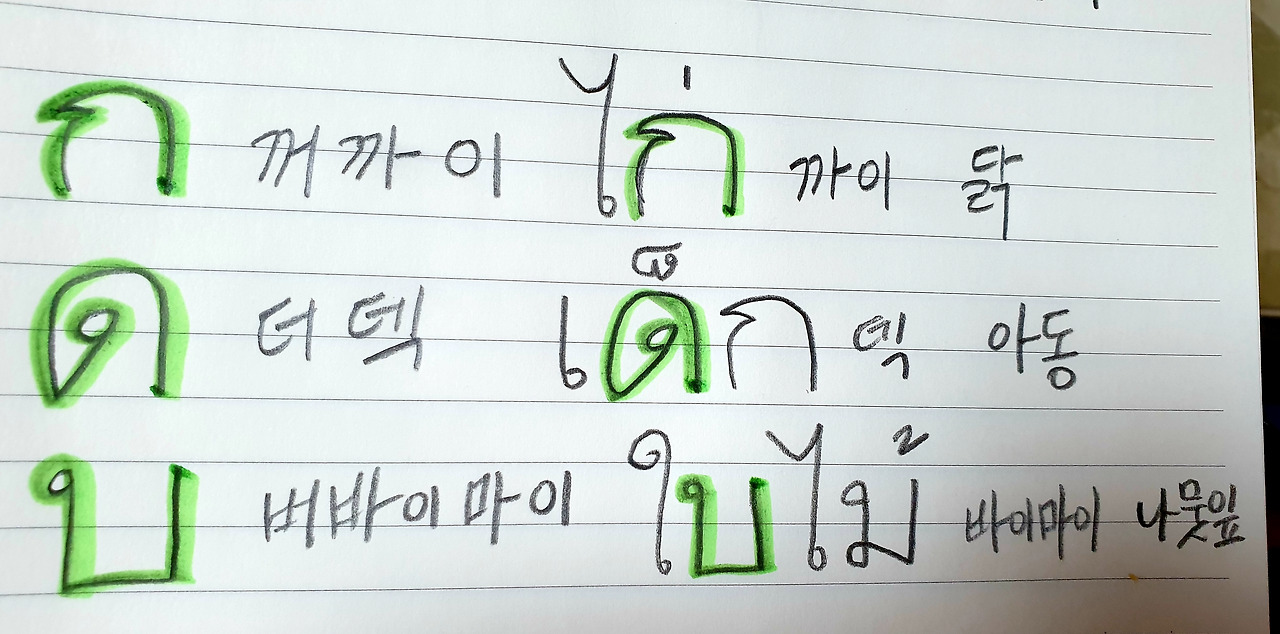 ก 꺼 까이 ไก่ 까이 닭
ด 더 덱 เด็ก 덱 아동
บ 버 바이 마이 ใบไม้ 바이마이 나뭇잎